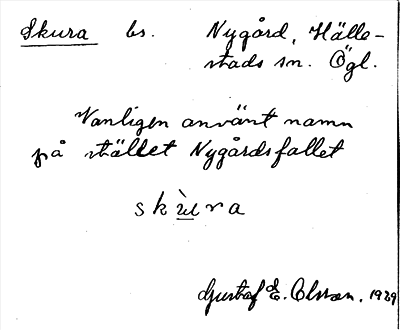 Skura bs. Nygård, Hälle-
stads sn. Ögl.
Vanligen använt namn
på stället Nygårdsfallet
skùra
Gustaf E. Olsson. 1929